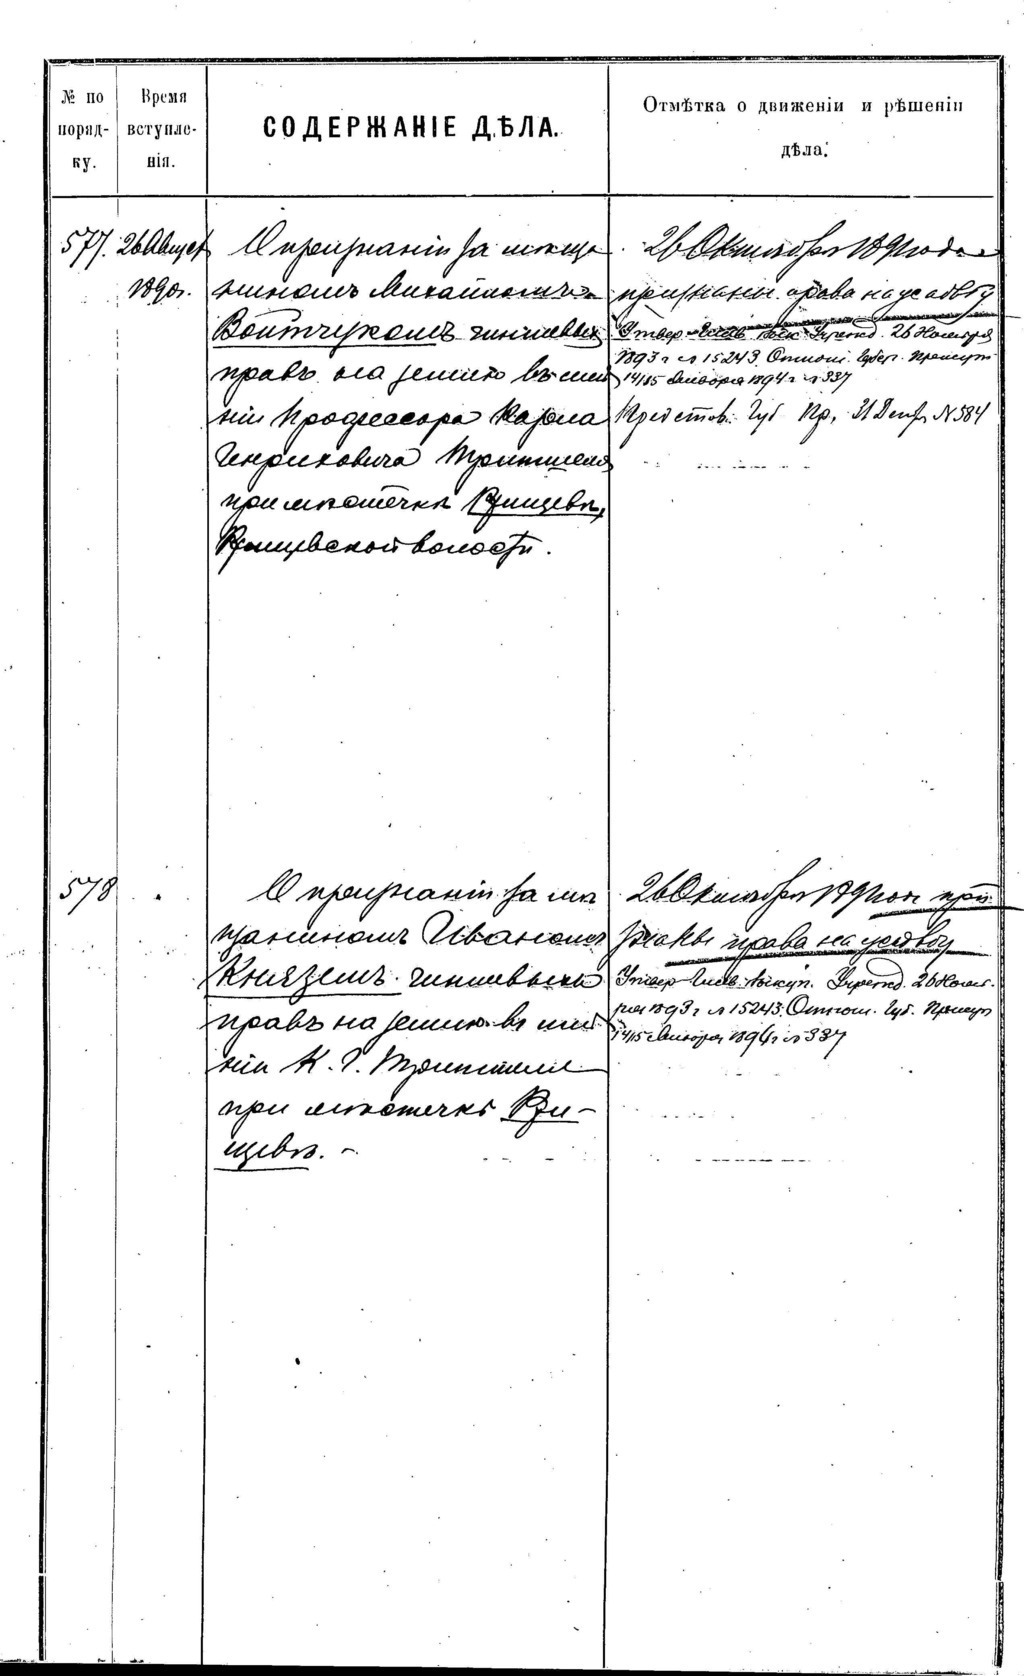 № по поряд- ку.
Время вступле- нія.
СОДЕРЖАНІЕ ДѢЛА.
Отмѣтка о движеніи и рѣшеніи дѣла.
577.
26 Август
1890г.
О признаніи за мѣща-
ниномъ Михаиломъ
Войтчукомъ чиншевыхъ
правъ на землю въ имѣ
ніи Профессора Карла
Генриховича Тритшеля
при мѣстечкѣ Рзищевѣ,
Рзищевской волости.
26 Октября 1891 года
признаны права на усадьбу
Утвер. Глав. Выкуп. Учрежд. 26 Ноября
1893 г № 15243. Отнош. Губерн. Присут
14/15 Января 1894 г № 337
Представ. Губ Пр. 31 Декаб. № 584
578
О признаніи за мѣ
щаниномъ Иваномъ
Княземъ чиншевыхъ
правъ на землю въ имѣ
ніи К. Г. Тритшеля
при мѣстечкѣ Рзи-
щевѣ. -
26 Октября 1891 года при
знаны права на усадьбу
Утвер Глав. Выкуп. Учрежд. 26 Нояб-
ря 1893 г № 15243. Отнош. Губ. Присут
14/15 Января 1894 г № 337